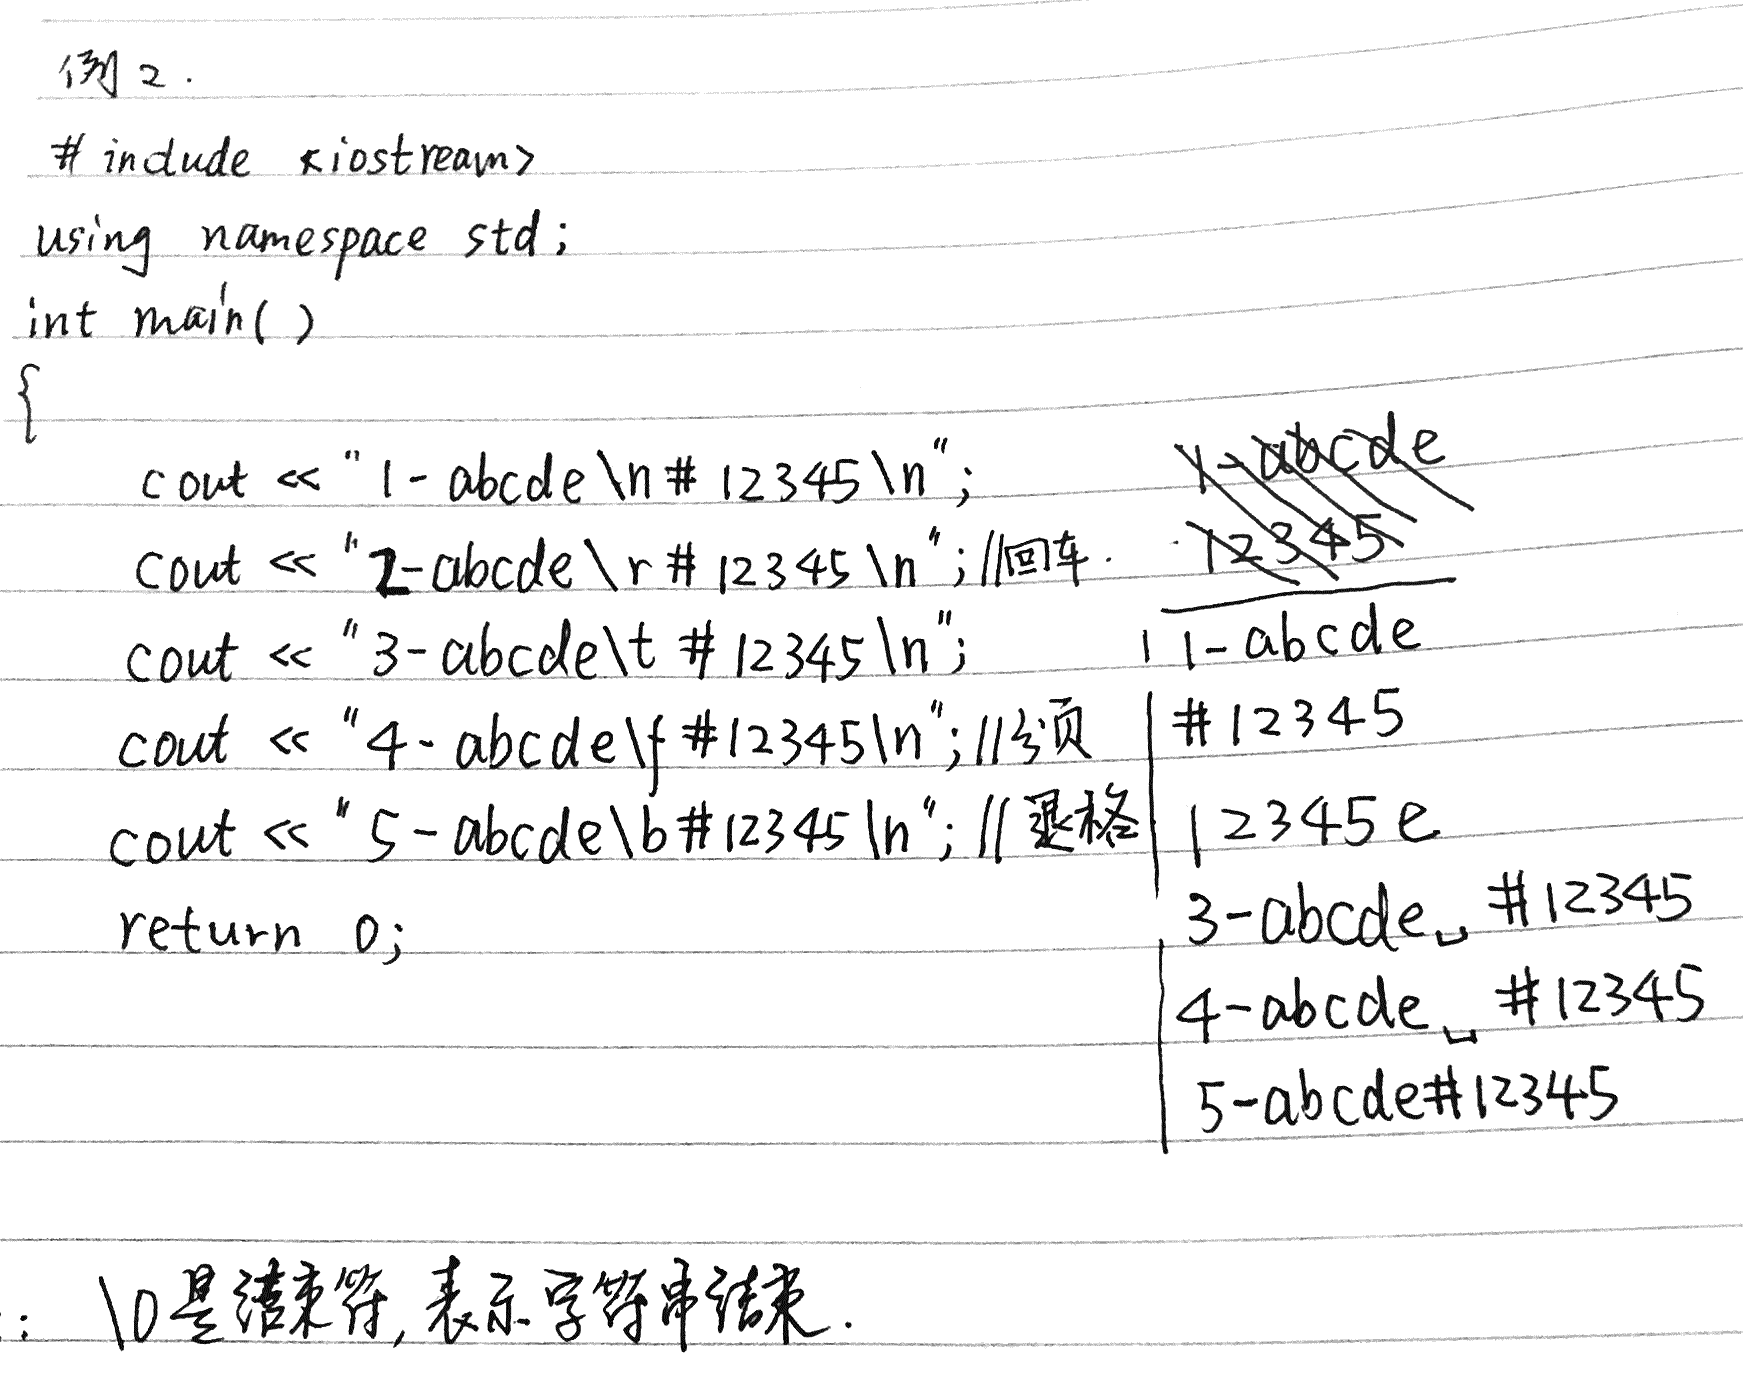 例2.
#include <iostream>
using namespace std;
int main()
{
cout << "1-abcde\n#12345\n";
cout << "2-abcde\r#12345\n"; //回车.
cout << "3-abcde\t #12345\n";
cout << "4-abcde\f#12345\n"; //分页
cout << "5-abcde\b#12345\n"; //退格
return 0;
1-abcde
12345
1-abcde
#12345
12345e
3-abcde␣ #12345
4-abcde␣ #12345
5-abcde#12345
\0是结束符,表示字符串结束.